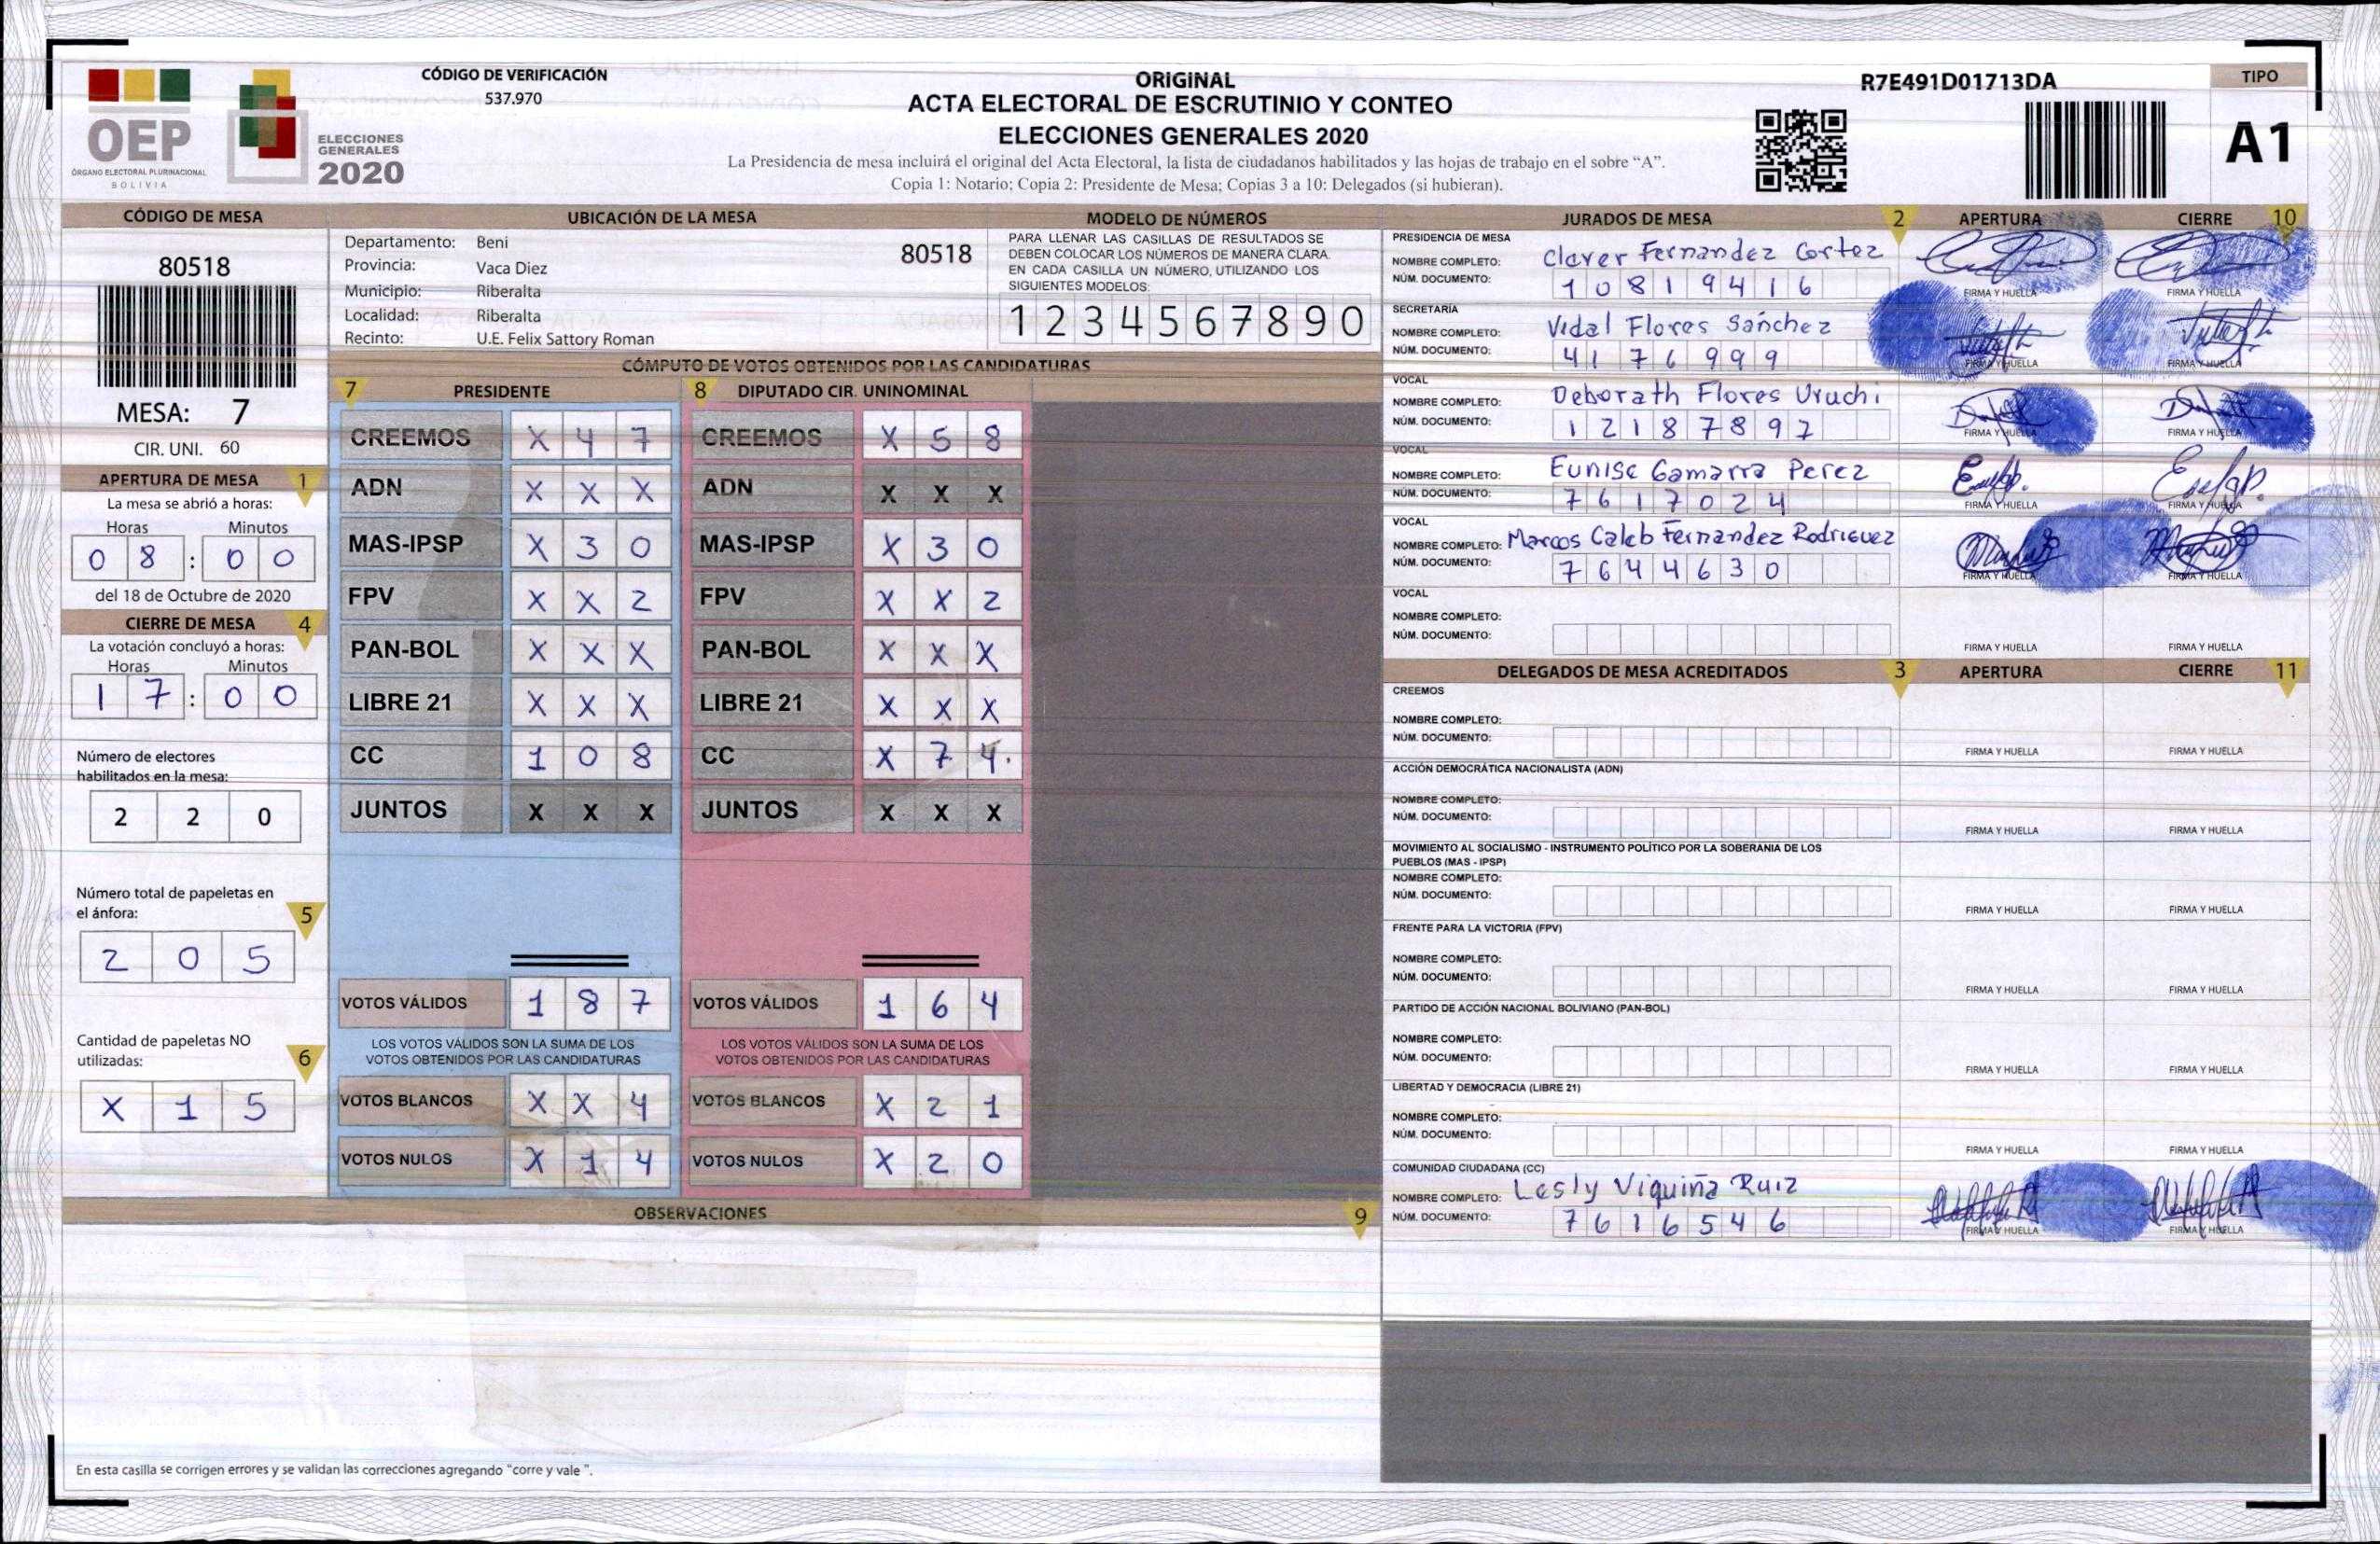 OEP
ÓRGANO ELECTORAL PLURINACIONAL
BOLIVIA
ELECCIONES
GENERALES
2020
CÓDIGO DE VERIFICACIÓN
537.970
ORIGINAL
ACTA ELECTORAL DE ESCRUTINIO Y CONTEO
ELECCIONES GENERALES 2020
La Presidencia de mesa incluirá el original del Acta Electoral, la lista de ciudadanos habilitados y las hojas de trabajo en el sobre “A”.
Copia 1: Notario; Copia 2: Presidente de Mesa; Copias 3 a 10: Delegados (si hubieran).
R7E491D01713DA
TIPO
A1
CÓDIGO DE MESA
80518
MESA: 7
CIR. UNI. 60
APERTURA DE MESA 1
La mesa se abrió a horas:
Horas Minutos
0 8 : 0 0
del 18 de Octubre de 2020
CIERRE DE MESA 4
La votación concluyó a horas:
Horas Minutos
1 7 : 0 0
Número de electores
habilitados en la mesa:
2 2 0
Número total de papeletas en
el ánfora: 5
2 0 5
Cantidad de papeletas NO
utilizadas: 6
X 1 5
UBICACIÓN DE LA MESA
Departamento: Beni
Provincia: Vaca Diez
Municipio: Riberalta
Localidad: Riberalta
Recinto: U.E. Felix Sattory Roman
80518
MODELO DE NÚMEROS
PARA LLENAR LAS CASILLAS DE RESULTADOS SE
DEBEN COLOCAR LOS NÚMEROS DE MANERA CLARA.
EN CADA CASILLA UN NÚMERO, UTILIZANDO LOS
SIGUIENTES MODELOS:
1 2 3 4 5 6 7 8 9 0
CÓMPUTO DE VOTOS OBTENIDOS POR LAS CANDIDATURAS
7 PRESIDENTE
CREEMOS X 4 7
ADN X X X
MAS-IPSP X 3 0
FPV X X 2
PAN-BOL X X X
LIBRE 21 X X X
CC 1 0 8
JUNTOS X X X
VOTOS VÁLIDOS 1 8 7
LOS VOTOS VÁLIDOS SON LA SUMA DE LOS
VOTOS OBTENIDOS POR LAS CANDIDATURAS
VOTOS BLANCOS X X 4
VOTOS NULOS X 1 4
8 DIPUTADO CIR. UNINOMINAL
CREEMOS X 5 8
ADN X X X
MAS-IPSP X 3 0
FPV X X 2
PAN-BOL X X X
LIBRE 21 X X X
CC X 7 4.
JUNTOS X X X
VOTOS VÁLIDOS 1 6 4
LOS VOTOS VÁLIDOS SON LA SUMA DE LOS
VOTOS OBTENIDOS POR LAS CANDIDATURAS
VOTOS BLANCOS X 2 1
VOTOS NULOS X 2 0
OBSERVACIONES 9
En esta casilla se corrigen errores y se validan las correcciones agregando “corre y vale ”.
JURADOS DE MESA 2 APERTURA CIERRE 10
PRESIDENCIA DE MESA
NOMBRE COMPLETO: Claver Fernandez Cortez
NÚM. DOCUMENTO: 1 0 8 1 9 4 1 6
FIRMA Y HUELLA FIRMA Y HUELLA
SECRETARÍA
NOMBRE COMPLETO: Vidal Flores Sánchez
NÚM. DOCUMENTO: 4 1 7 6 9 9 9
FIRMA Y HUELLA FIRMA Y HUELLA
VOCAL
NOMBRE COMPLETO: Deborath Flores Uruchi
NÚM. DOCUMENTO: 1 2 1 8 7 8 9 7
FIRMA Y HUELLA FIRMA Y HUELLA
VOCAL
NOMBRE COMPLETO: Eunise Gamarra Perez
NÚM. DOCUMENTO: 7 6 1 7 0 2 4
FIRMA Y HUELLA FIRMA Y HUELLA
VOCAL
NOMBRE COMPLETO: Marcos Caleb Fernandez Rodriguez
NÚM. DOCUMENTO: 7 6 4 4 6 3 0
FIRMA Y HUELLA FIRMA Y HUELLA
VOCAL
NOMBRE COMPLETO:
NÚM. DOCUMENTO:
FIRMA Y HUELLA FIRMA Y HUELLA
DELEGADOS DE MESA ACREDITADOS 3 APERTURA CIERRE 11
CREEMOS
NOMBRE COMPLETO:
NÚM. DOCUMENTO:
FIRMA Y HUELLA FIRMA Y HUELLA
ACCIÓN DEMOCRÁTICA NACIONALISTA (ADN)
NOMBRE COMPLETO:
NÚM. DOCUMENTO:
FIRMA Y HUELLA FIRMA Y HUELLA
MOVIMIENTO AL SOCIALISMO - INSTRUMENTO POLÍTICO POR LA SOBERANIA DE LOS
PUEBLOS (MAS - IPSP)
NOMBRE COMPLETO:
NÚM. DOCUMENTO:
FIRMA Y HUELLA FIRMA Y HUELLA
FRENTE PARA LA VICTORIA (FPV)
NOMBRE COMPLETO:
NÚM. DOCUMENTO:
FIRMA Y HUELLA FIRMA Y HUELLA
PARTIDO DE ACCIÓN NACIONAL BOLIVIANO (PAN-BOL)
NOMBRE COMPLETO:
NÚM. DOCUMENTO:
FIRMA Y HUELLA FIRMA Y HUELLA
LIBERTAD Y DEMOCRACIA (LIBRE 21)
NOMBRE COMPLETO:
NÚM. DOCUMENTO:
FIRMA Y HUELLA FIRMA Y HUELLA
COMUNIDAD CIUDADANA (CC)
NOMBRE COMPLETO: Lesly Viquiña Ruiz
NÚM. DOCUMENTO: 7 6 1 6 5 4 6
FIRMA Y HUELLA FIRMA Y HUELLA